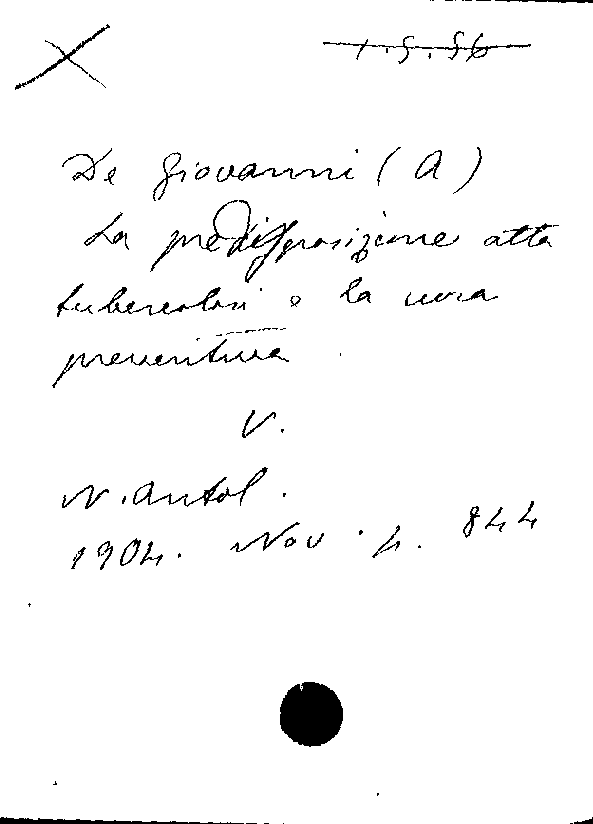 1.5.56
De Giovanni (A)
La predisposizione alla
tubercolosi e la cura
preventiva
V.
N. Antol.
1904. Nov. p. 844